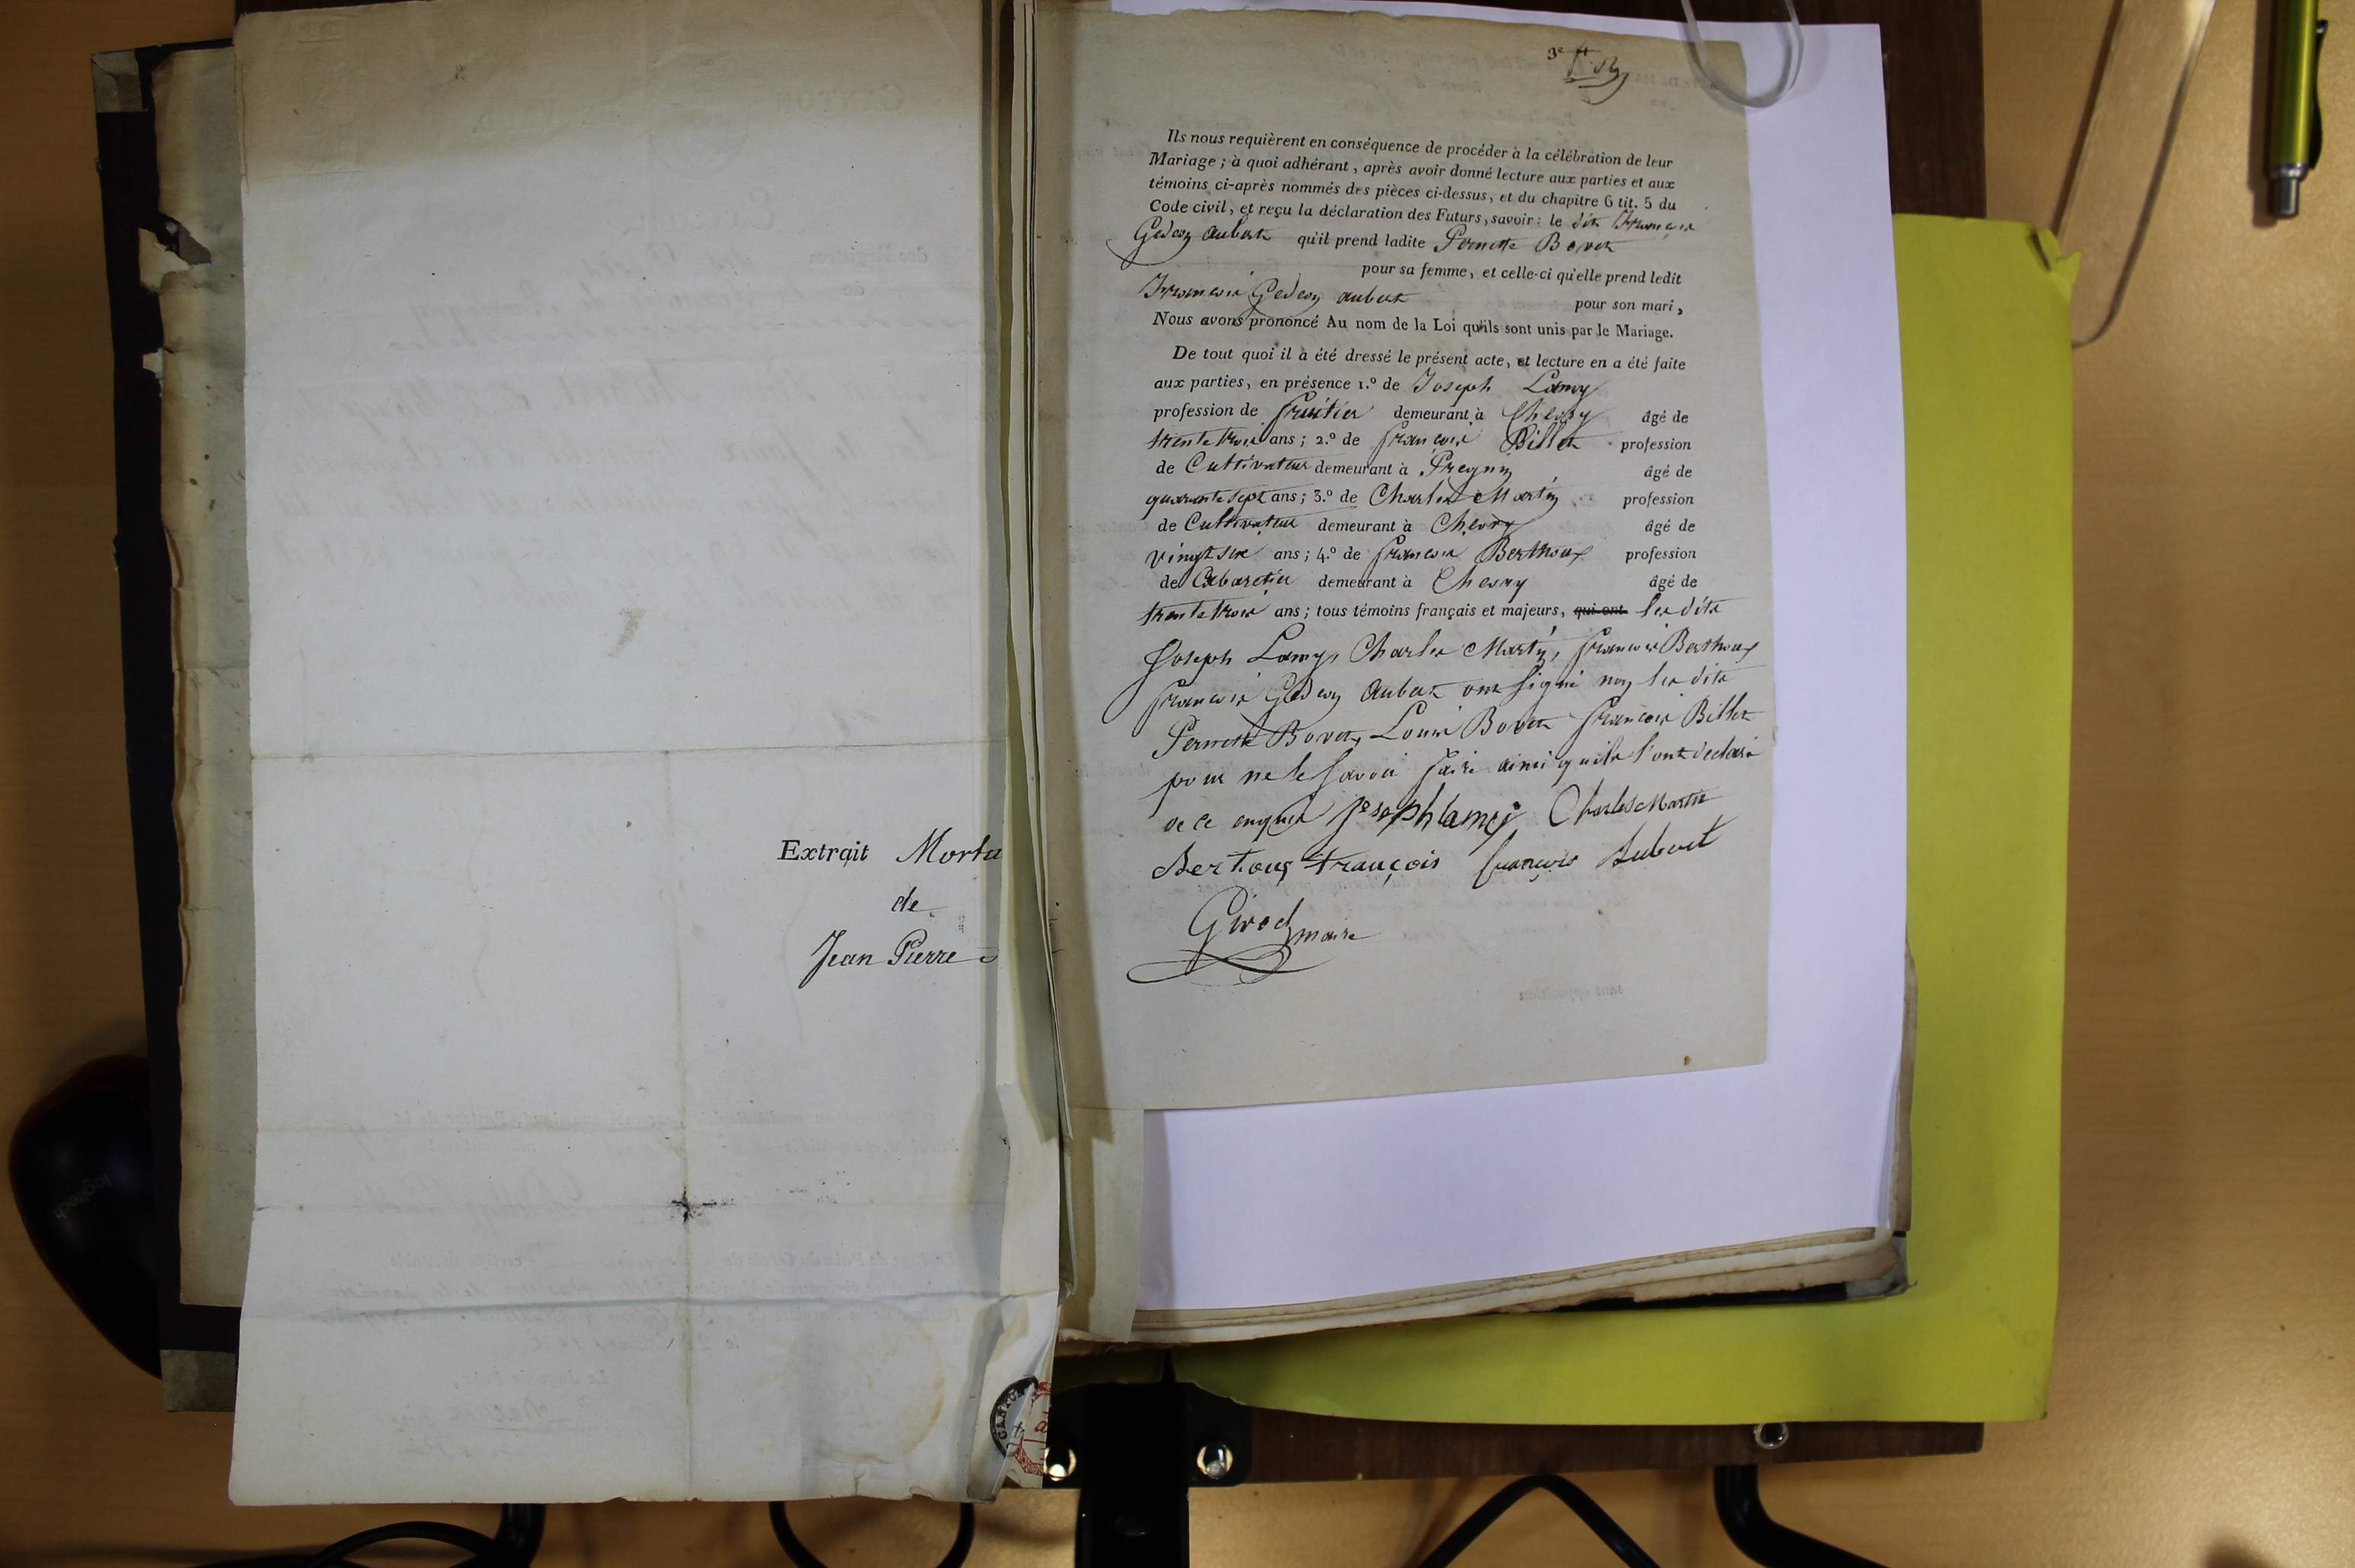 Extrait Mortu
de
Jean Pierre
3e
Ils nous requièrent en conséquence de procéder à la célébration de leur
Mariage ; à quoi adhérant, après avoir donné lecture aux parties et aux
témoins ci-après nommés des pièces ci-dessus, et du chapitre 6 tit. 5 du
Code civil, et reçu la déclaration des Futurs, savoir : le dit François
Gedeon Aubert qu'il prend ladite Pernette Bovet
pour sa femme, et celle-ci qu'elle prend ledit
François Gedeon Aubert pour son mari,
Nous avons prononcé Au nom de la Loi qu'ils sont unis par le Mariage.
De tout quoi il à été dressé le présent acte, et lecture en a été faite
aux parties, en présence 1.º de Joseph Lamy
profession de fruitier demeurant à Chevry âgé de
trente trois ans ; 2.º de françois Billet profession
de Cultivateur demeurant à Pregnin âgé de
quarante sept ans ; 3.º de Charles Martin profession
de Cultivateur demeurant à Chevry âgé de
vingt six ans ; 4.º de françois Berthoux profession
de Cabaretier demeurant à Chevry âgé de
trente trois ans ; tous témoins français et majeurs, qui ont les dits
Joseph Lamy, Charles Martin, françois Berthoux
françois Gedeon Aubert ont signé non les dits
Pernette Bovet, Louis Bovet françois Billet
pour ne le savoir faire ainsi quils l'ont déclaré
de ce enquis joseph lamy Charles Martin
Bertoux françois françois Aubert
Girod maire
CANTON
logitech